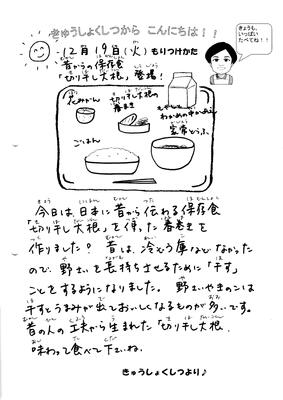 きゅうしょくしつから こんにちは！！
きょうも、
いっぱい
たべてね！！
12月19日(火) もりつけかた
昔からの保存食
「切り干し大根」登場！
花みかん
切り干し大根の
春まき
わかめの中かあえ
ごはん
家常どうふ
今日は、日本に昔から伝わる保存食
「切り干し大根」を使った春巻きを
作りました？昔は、冷ぞう庫などなかった
ので、野さいを長持ちさせるために「干す」
ことをするようになりました。野さいやきのこは
干すとうまみが出ておいしくなるものが多いです。
昔の人の工夫から生まれた「切り干し大根、
味わって食べて下さいね。
きゅうしょくしつより♪